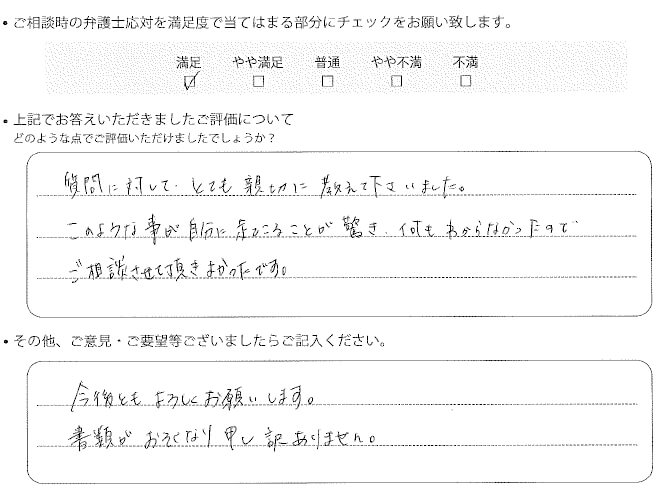 • ご相談時の弁護士応対を満足度で当てはまる部分にチェックをお願い致します。
満足 やや満足 普通 やや不満 不満
☑ □ □ □ □
• 上記でお答えいただきましたご評価について
どのような点でご評価いただけましたでしょうか?
質問に対して、とても親切に教えて下さいました。
このような事が自分に起こることが驚き、何もわからなかったので
ご相談させて頂きよかったです。
• その他、ご意見・ご要望等ございましたらご記入ください。
今後ともよろしくお願いします。
書類がおそくなり申し訳ありません。